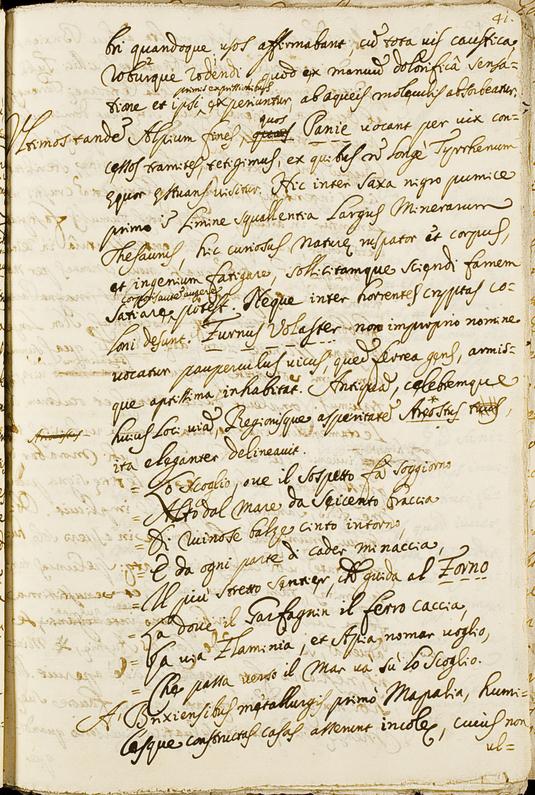 41.
bri quandoque usos affirmabant, cũ tota vis caustica,
roburque rodendi, quod ex manuũ dolorificâ sensa=
primis expuitionibus
tione et ipsi experiuntur, ab aqueis moleculis absorbeatur.
quos
Ultimos tandẽ Alpium fines, Panie vocant per vix con=
cessos tramites tetigimus, ex quibus nõ longe Tyrrhenum
Æquor æstuans visitur. Hic inter saxa nigro pumice
primo is limine squallentia largus Minerarum
Thesaurus, hic curiosus Naturę et corpus,
et ingenium fatigare, sollicitamque sciendi famem
satiare potest. Neque inter horrentes cryptas co=
loni desunt. Furnus Volaster non improprio nomine
vocatur pauperculus vicus, quẽ ferrea gens, armis=
que aptissima inhabitat. Antiquã, celebremque
huius loci viã, Regionisque asperitatẽ Areostus
ita eleganter delineavit.
= Lo Scoglio, ove il sospetto fà soggiorno
= Alto dal Mare da seicento braccia
= Di ruinose balze cinto intorno,
= E da ogni parte di cader minaccia,
= Il più stretto sentier, chè guida al Forno
= La dove il Garfagnin il ferro caccia,
= La via Flaminia, et Apia nomar voglio,
= Che passa verso il Mar va sù lo Scoglio.
A' Brixiensibus metallurgis primò Mapalia, humi=
lesque constructas casas asserunt incolę, cuius non
ul=